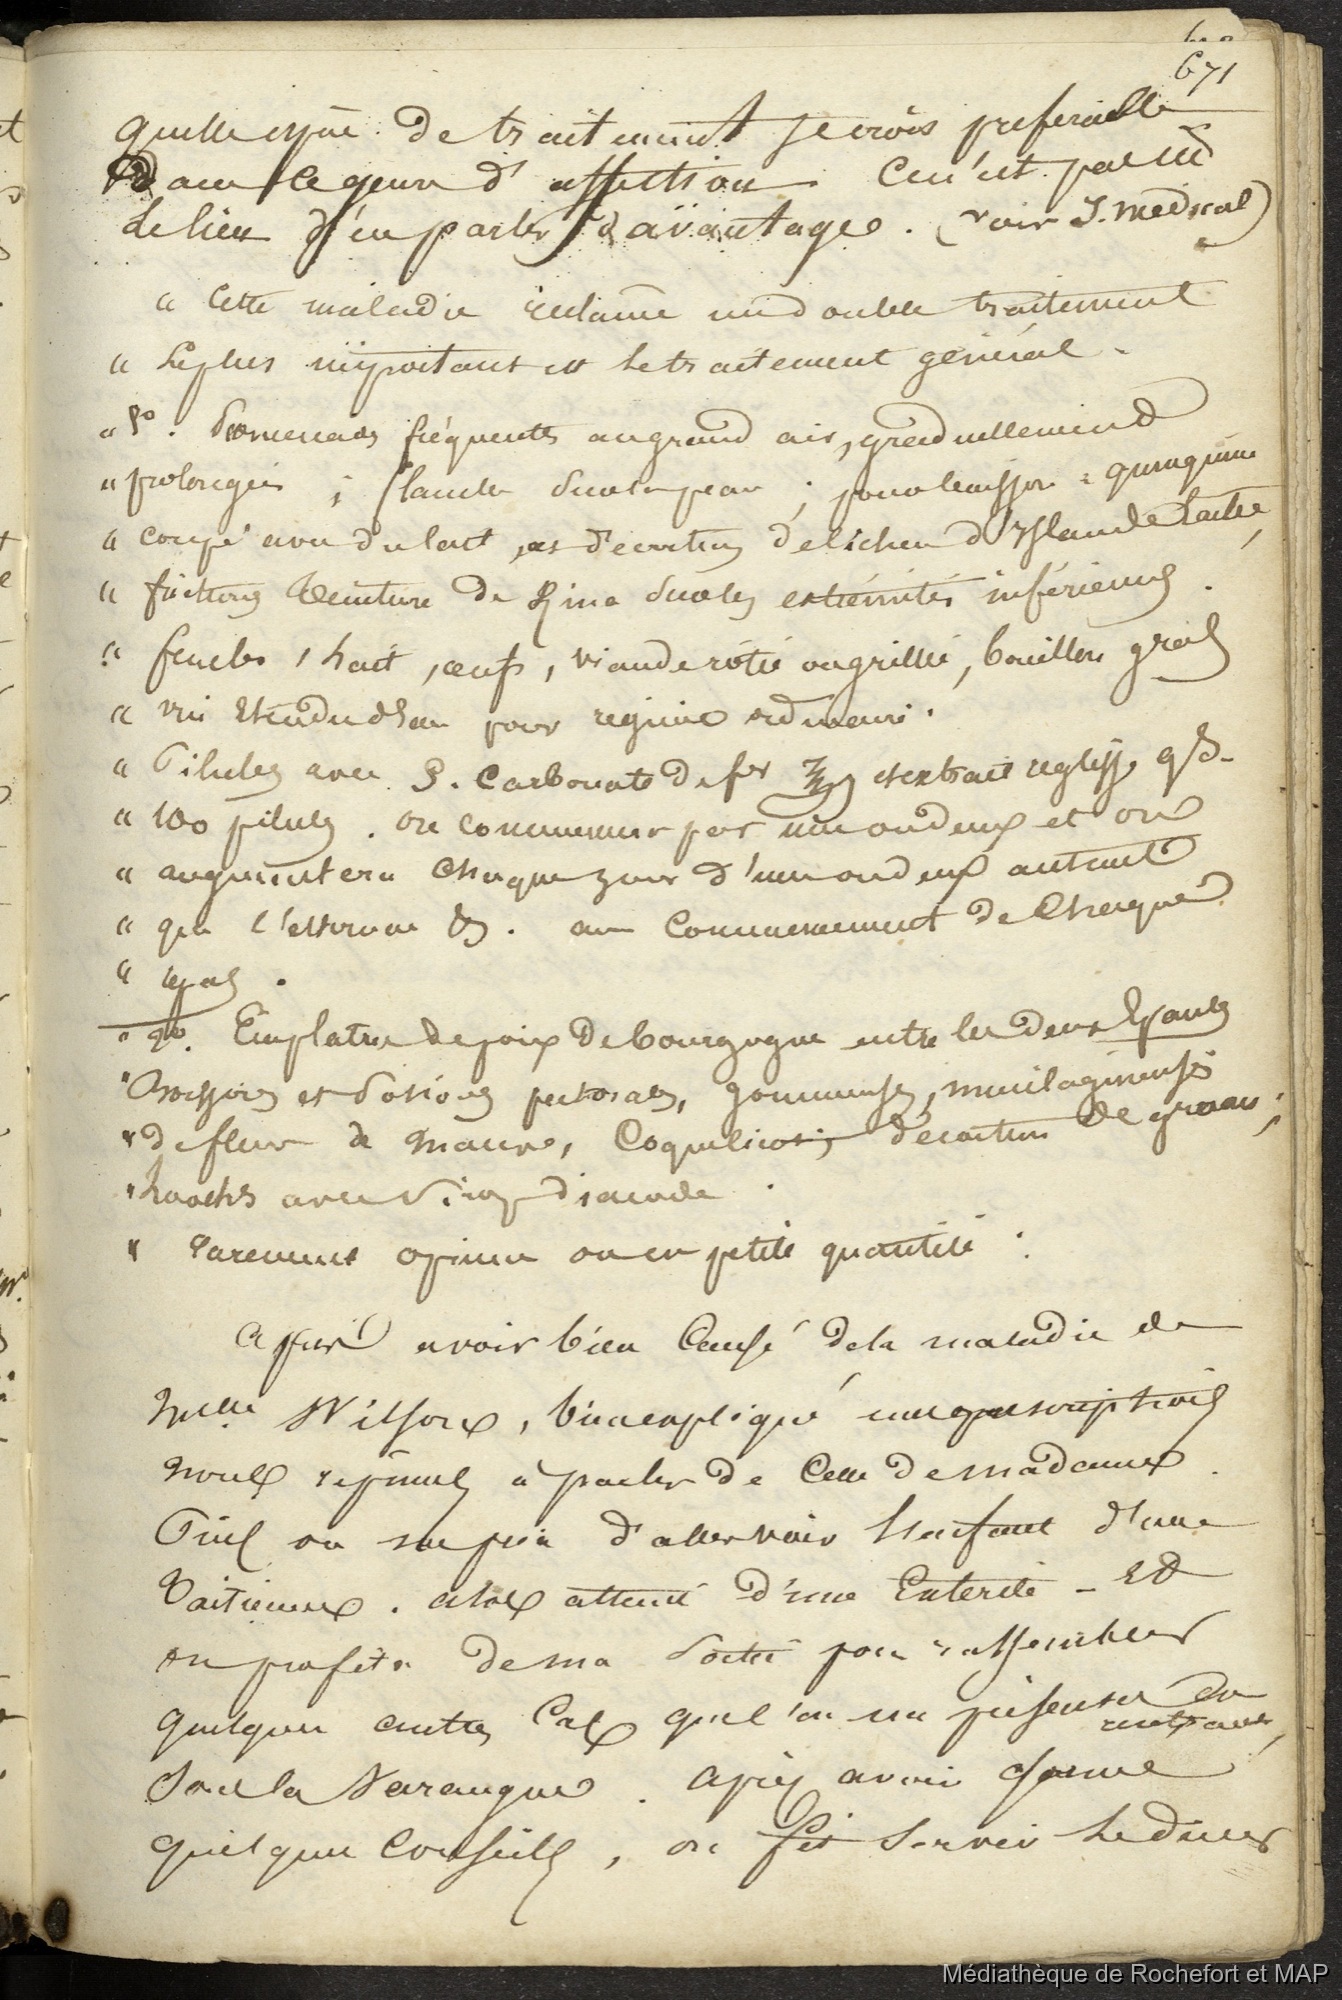 671
quelle espèce de traitement je crois préférable
dans ce genre d'affection. Ce n'est pas ici
le lieu d'en parler d'avantage. (voir J. médical)
" Cette maladie réclame un double traitement
" Le plus important est le traitement général.
" 1º. Promenades fréquentes au grand air, graduellement
" prolongées ; flanelle sur la peau ; pour boisson : quinquina
" coupé avec du lait, et décoction de lichen d'Islande lactée,
" frictions teinture de Kina sur les extrémités inférieures.
" fécules, lait, œufs, viande rôtie ou grillée, bouillon gras
" vin étendu d'eau pour régime ordinaire.
" Pilules avec P. Carbonate de fer et extrait réglisse qs.
" 100 pilules. on commencera par une ou deux et on
" augmentera chaque jour d'une ou deux autant
" que l'estomac &. au commencement de chaque
" repas.
" 2º. Emplatre de poix de bourgogne entre les deux épaules
" Boissons et potions pectorales, gommeuses, mucilagineuses
" de fleurs de mauve, coquelicots, décoction de gruau ;
" Loochs avec sirop diacode.
" rarement opium ou en petite quantité.
Après avoir bien causé de la maladie de
Melle Wilson, bien expliqué une prescription
nous revînmes à parler de celle de madame
Puis on me pria d'aller voir l'enfant d'une
Voisine. atteint d'une Entérite - Et
on profita de ma sortie pour rassembler
quelques autres cas que l'on me présenta en
rentrant,
sous la Varangue. après avoir donné
quelques conseils, on fit servir le dîner
Médiathèque de Rochefort et MAP